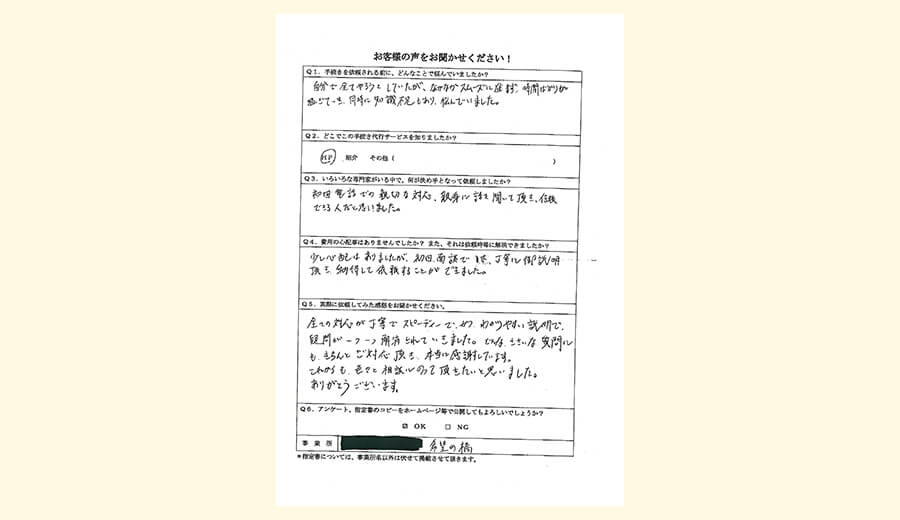 お客様の声をお聞かせください！
Q1．手続きを依頼される前に、どんなことで悩んでいましたか？
自分で全てやろうとしていたが、なかなかスムーズに進まず、時間ばかりが
過ぎていき、同時に知識不足もあり、悩んでいました。
Q2．どこでこの手続き代行サービスを知りましたか？
HP 紹介 その他（ ）
Q3．いろいろな専門家がいる中で、何が決め手となって依頼しましたか？
初回電話での親切な対応、親身に話を聞いて頂き、信頼
できる人だと思いました。
Q4．費用の心配事はありませんでしたか？ また、それは依頼時等に解決できましたか？
少し心配はありましたが、初回、面談で、丁寧に御説明
頂き、納得して依頼することができました。
Q5．実際に依頼してみた感想をお聞かせください。
全ての対応が丁寧でスピーディーで、かつ、わかりやすい説明で、
疑問が一つ一つ解消されていきました。どんな、小さいな質問に
も、きちんとご対応頂き、本当に感謝しています。
これからも、色々と相談にのって頂きたいと思いました。
ありがとうございます。
Q6．アンケート、指定書のコピーをホームページ等で公開してもよろしいでしょうか？
☑ OK □ NG
事業所 希望の橋
＊指定書については、事業所名以外は伏せて掲載させて頂きます。